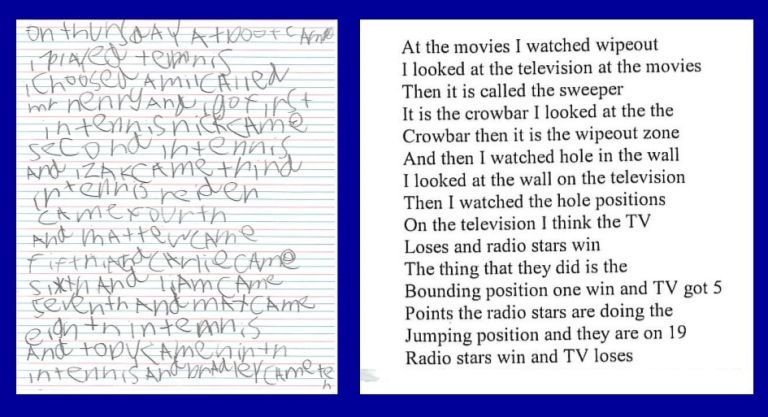 on thursday At pootcAme
i played tennis
i choosed A miicAlled
mr henry And i got first
in tennis nick cAme
second in tennis
And izAk cAme third
in tennis reiden
cAme fourth
And mattew cAme
fifth And cArlie cAme
sixth And liAm cAme
seventh And mat cAme
eighth in tennis
And toby cAme ninth
in tennis And bradley cAme te
n
At the movies I watched wipeout
I looked at the television at the movies
Then it is called the sweeper
It is the crowbar I looked at the the
Crowbar then it is the wipeout zone
And then I watched hole in the wall
I looked at the wall on the television
Then I watched the hole positions
On the television I think the TV
Loses and radio stars win
The thing that they did is the
Bounding position one win and TV got 5
Points the radio stars are doing the
Jumping position and they are on 19
Radio stars win and TV loses